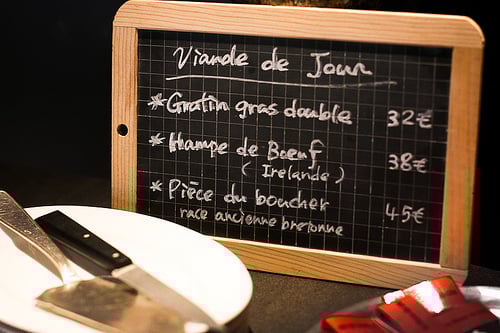 Viande de Jour
*Gratin gras double 32€
*Hampe de Bœuf 38€
(Irelande)
*Pièce du boucher 45€
race ancienne bretonne